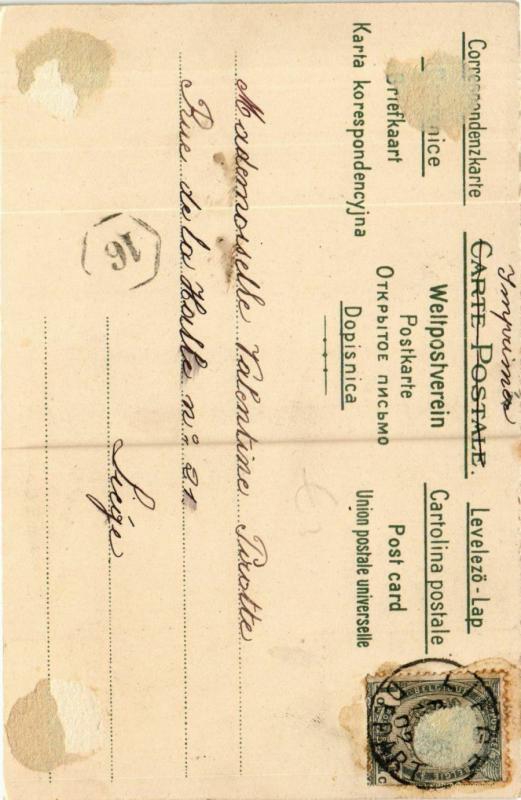 Imprimés
Correspondenzkarte CARTE POSTALE. Levelező-Lap
Weltpostverein Cartolina postale
Briefkaart Postkarte Post card
Karta korespondencyjna ОТКРЫТОЕ ПИСЬМО Union postale universelle
Dopisnica
Mademoiselle Valentine Pirotte
Rue de la Halle n° 21
Liége
16
DEPART
BELGIQUE